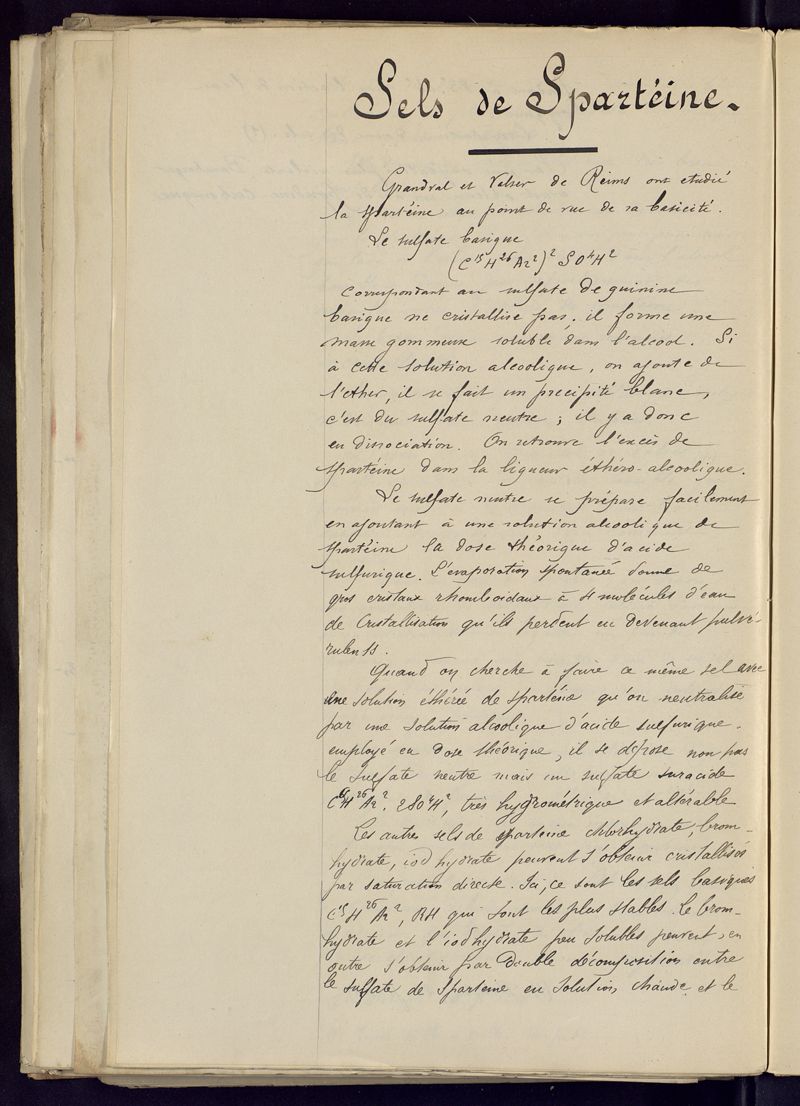 Sels de Spartéine.
Grandval et Valser de Reims ont etudié
la spartéine au point de vue de sa basicité.
Le sulfate basique
(C¹⁵H²⁶Az²)² SO⁴H²
correspondant au sulfate de quinine
basique ne cristallise pas. il forme une
masse gommeuse soluble dans l'alcool. Si
à cette solution alcoolique, on ajoute de
l'ether, il se fait un précipité blanc,
c'est du sulfate neutre ; il y a donc
eu dissociation. On retrouve l'excès de
spartéine dans la liqueur éthéro-alcoolique.
Le sulfate neutre se prépare facilement
en ajoutant à une solution alcoolique de
spartéine la dose théorique d'acide
sulfurique. L'evaporation spontanée donne de
gros cristaux rhomboïdaux à 4 molécules d'eau
de cristallisation qu'ils perdent en devenant pulvé-
rulents.
Quand on cherche à faire ce même sel avec
une solution éthérée de spartéine qu'on neutralise
par une solution alcoolique d'acide sulfurique
employé en dose théorique, il se dépose non pas
le sulfate neutre mais un sulfate suracide
H²⁶Az². 2SO⁴H², très hygrométrique et altérable
Les autres sels de sparteine chlorhydrate, brom-
hydrate, iodhydrate peuvent s'obtenir cristallisés
par saturation directe. Ici, ce sont les sels basiques
C¹⁵H²⁶Az², RH qui sont les plus stables. Le brom-
hydrate et l'iodhydrate peu solubles peuvent, en
outre s'obtenir par double décomposition entre
le sulfate de Sparteine en solution chaude et le